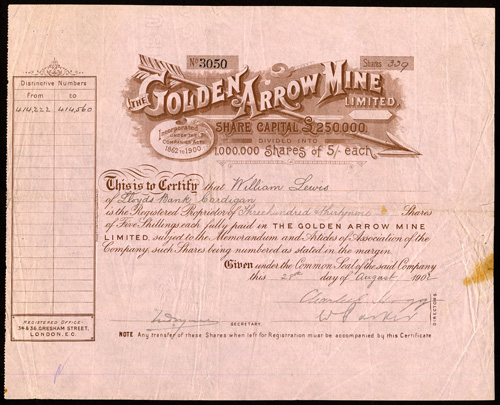 No 3050
Shares 339
THE GOLDEN ARROW MINE
LIMITED.
Incorporated
UNDER THE
COMPANIES ACTS
1862 TO 1900
SHARE CAPITAL £250,000,
DIVIDED INTO
1,000,000 Shares of 5/- each.
Distinctive Numbers
From to
414,222 414,560
This is to Certify that William Lewis
of Lloyds Bank Cardigan
is the Registered Proprietor of Three hundred & thirty nine Shares
of Five Shillings each fully paid in THE GOLDEN ARROW MINE
LIMITED, subject to the Memorandum and Articles of Association of the
Company, such Shares being numbered as stated in the margin.
Given under the Common Seal of the said Company
this 28th day of August 1902
DIRECTORS
SECRETARY.
REGISTERED OFFICE:-
34 & 36, GRESHAM STREET,
LONDON, E.C.
NOTE Any transfer of these Shares when left for Registration must be accompanied by this Certificate